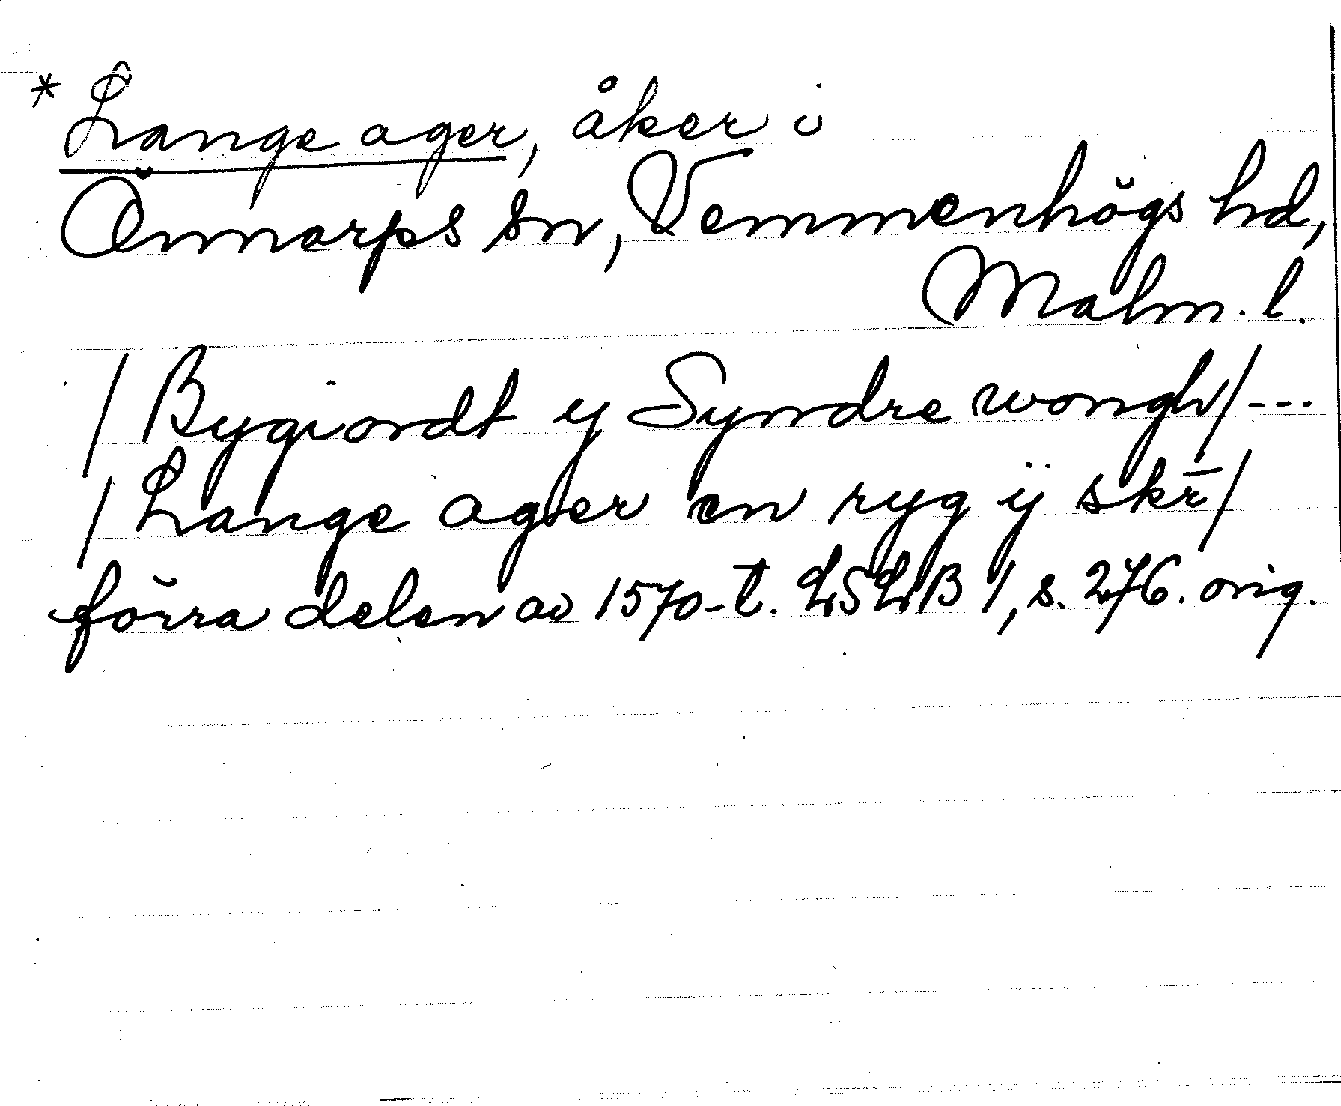 * Lange ager, åker i
Önnarps sn, Vemmenhögs hd,
Malm. l.
/ Bygiordt y Syndre wongh/---
/ Lange ager en ryg ÿ skr̄/
förra delen av 1570-t. LSLB 1, s. 276. orig.